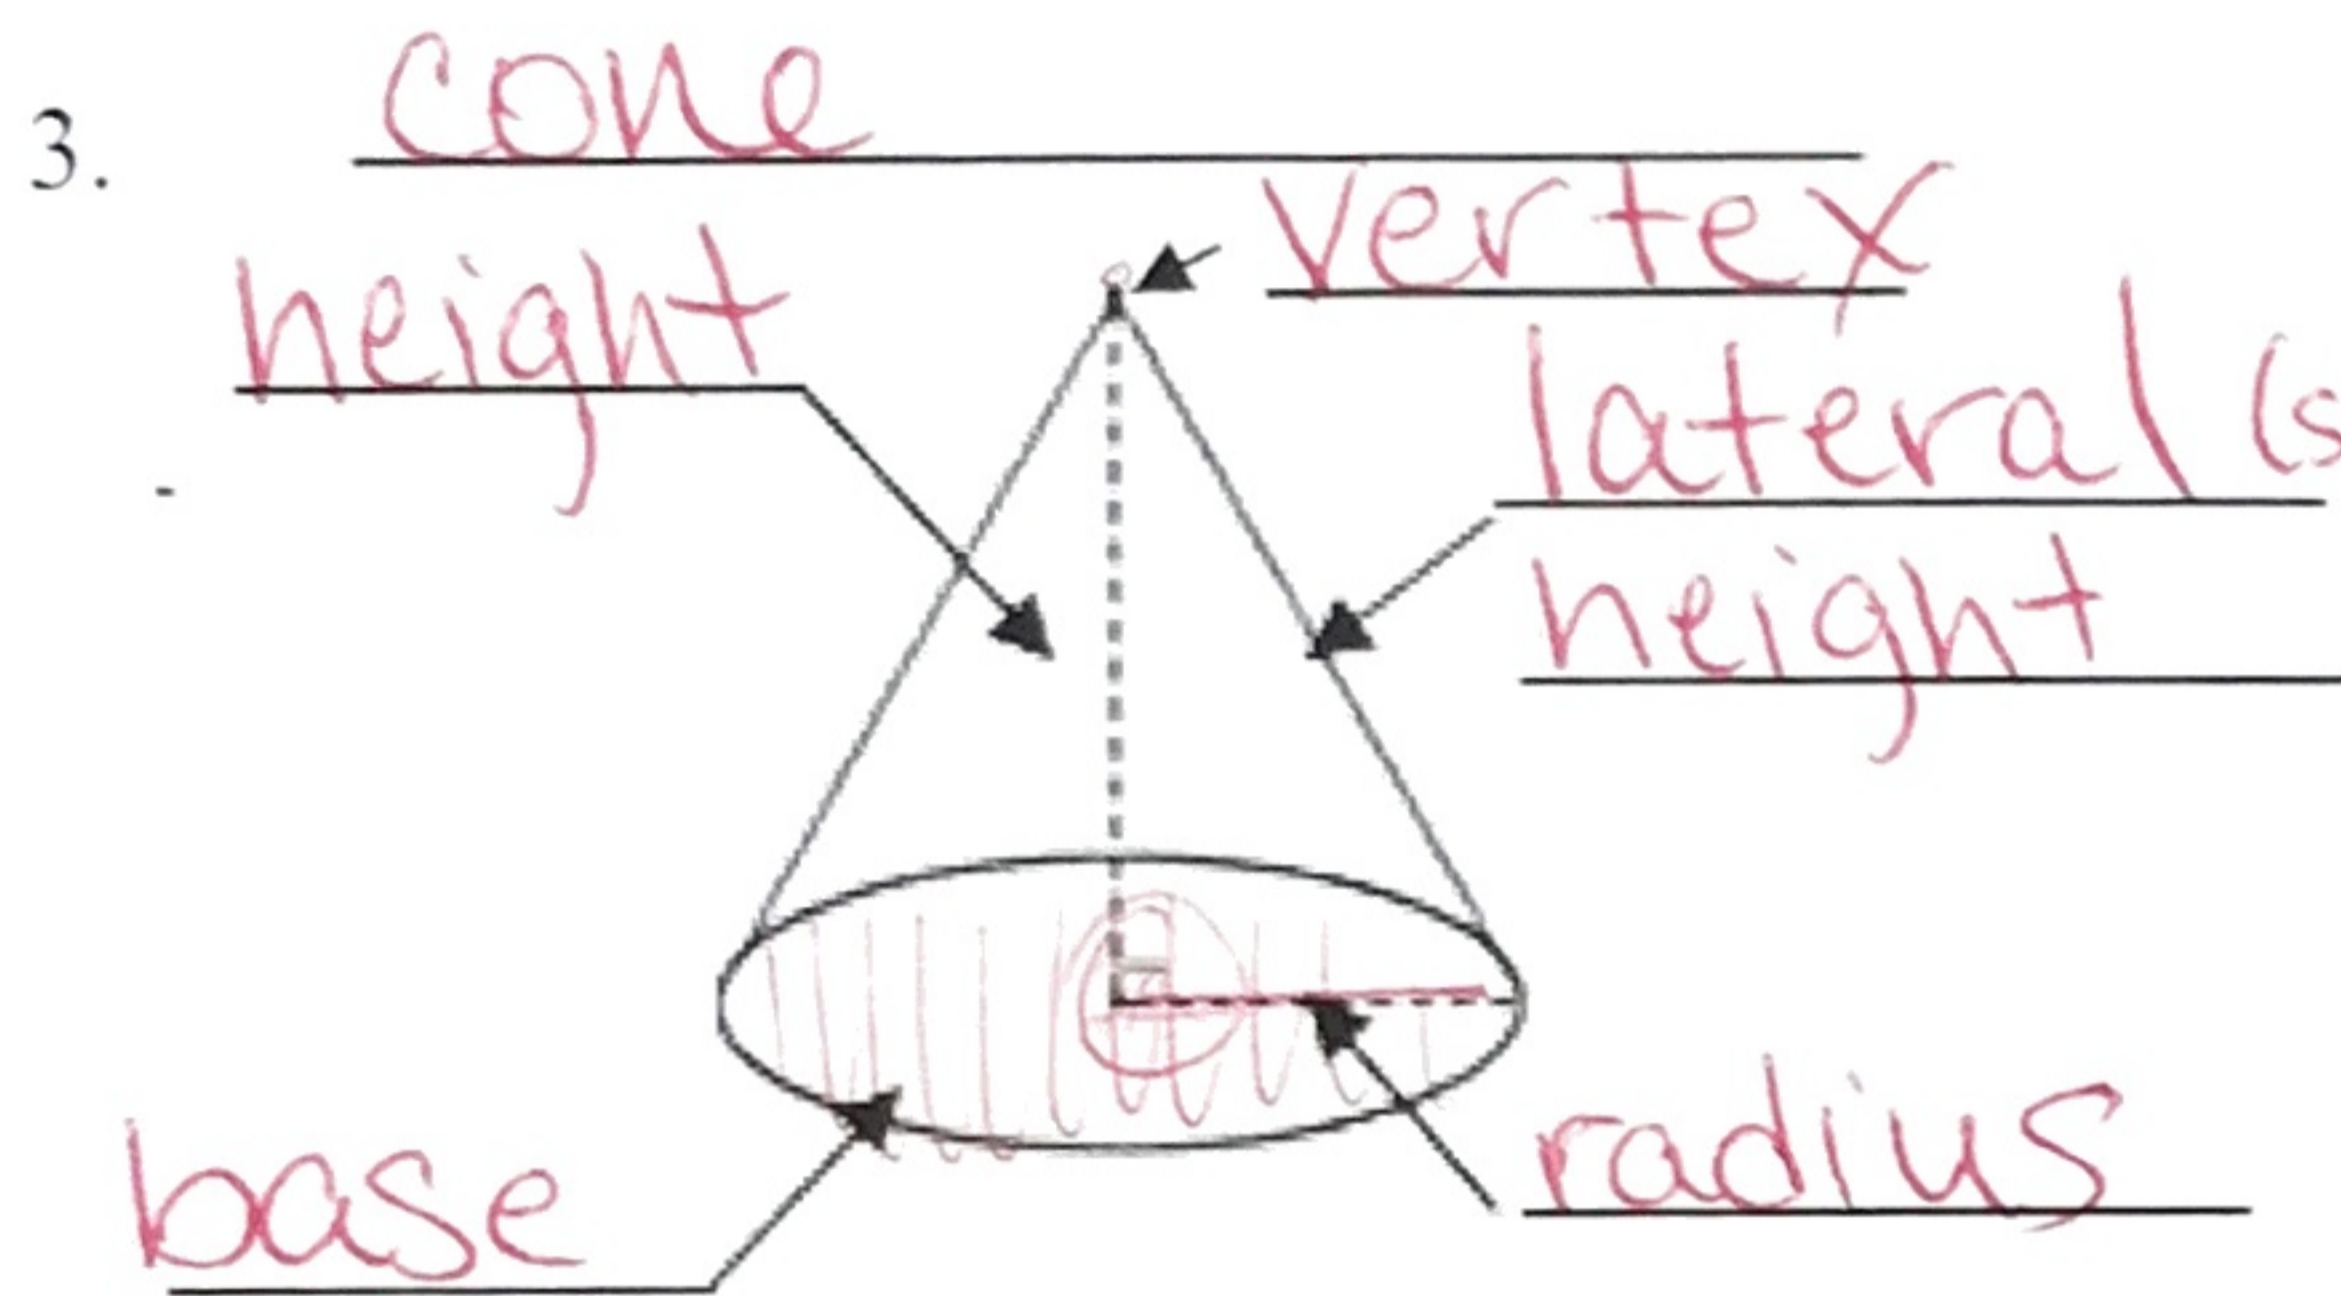 3. cone
vertex
height
lateral (s
height
base
radius